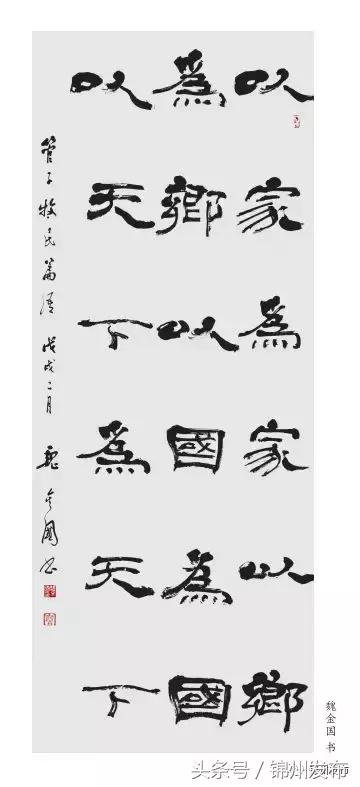 以家為家以鄉
為鄉以國為國
以天下為天下
管子牧民篇语 戊戌二月 魏金國书
魏金国 书
头条号 / 锦州发布